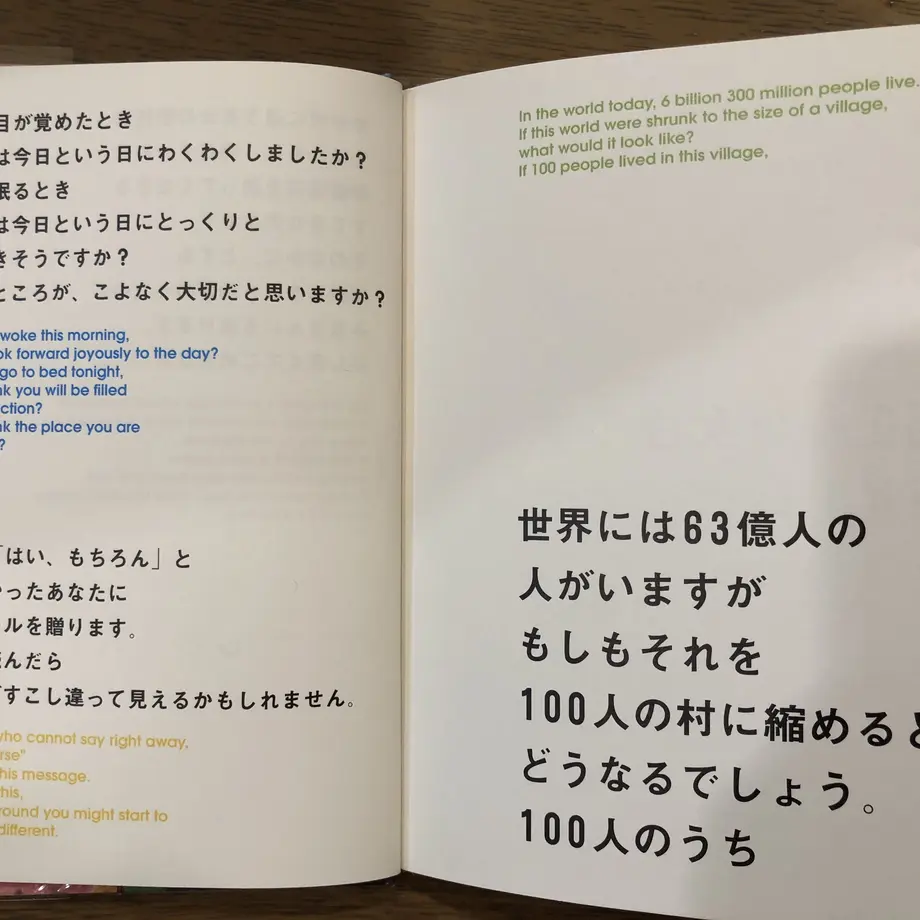 目が覚めたとき
は今日という日にわくわくしましたか?
眠るとき
は今日という日にとっくりと
きそうですか?
ところが、こよなく大切だと思いますか?
woke this morning,
ok forward joyously to the day?
go to bed tonight,
nk you will be filled
ction?
nk the place you are
?
「はい、もちろん」と
ったあなたに
ルを贈ります。
んだら
すこし違って見えるかもしれません。
who cannot say right away,
rse"
his message.
this,
round you might start to
different.
In the world today, 6 billion 300 million people live.
If this world were shrunk to the size of a village,
what would it look like?
If 100 people lived in this village,
世界には63億人の
人がいますが
もしもそれを
100人の村に縮めると
どうなるでしょう。
100人のうち